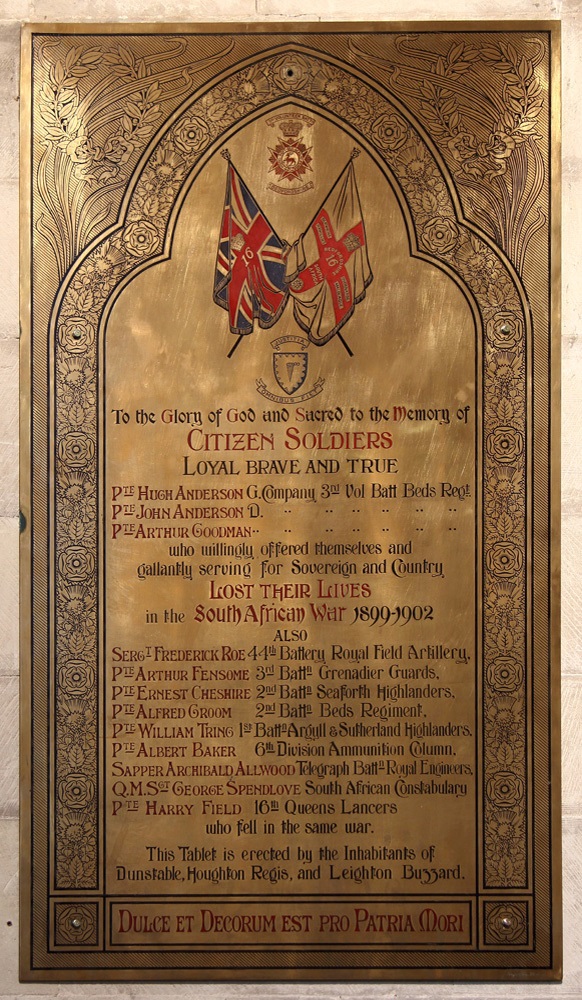 16
16
JUSTITIA
OMNIBUS FIAT
To the Glory of God and Sacred to the Memory of
CITIZEN SOLDIERS
LOYAL BRAVE AND TRUE
PTE HUGH ANDERSON G. Company 3rd Vol Batt Beds Regt
PTE JOHN ANDERSON D. " " " " " "
PTE ARTHUR GOODMAN " " " " " " "
who willingly offered themselves and
gallantly serving for Sovereign and Country
LOST THEIR LIVES
in the South African War 1899-1902
ALSO
SERGT FREDERICK ROE 44th Battery Royal Field Artillery,
PTE ARTHUR FENSOME 3rd Battn Grenadier Guards,
PTE ERNEST CHESHIRE 2nd Battn Seaforth Highlanders,
PTE ALFRED GROOM 2nd Battn Beds Regiment,
PTE WILLIAM TRING 1st Battn Argyll & Sutherland Highlanders,
PTE ALBERT BAKER 6th Division Ammunition Column,
SAPPER ARCHIBALD ALLWOOD Telegraph Battn Royal Engineers,
Q.M.SGT GEORGE SPENDLOVE South African Constabulary
PTE HARRY FIELD 16th Queens Lancers
who fell in the same war.
This Tablet is erected by the Inhabitants of
Dunstable, Houghton Regis, and Leighton Buzzard.
DULCE ET DECORUM EST PRO PATRIA MORI